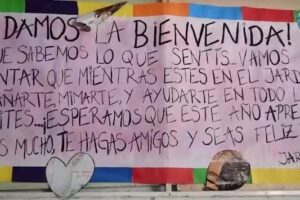 DAMOS LA BIENVENIDA!
UE SABEMOS LO QUE SENTÍS...VAMOS
NTAR QUE MIENTRAS ESTES EN EL JAR
ÑARTE, MIMARTE, Y AYUDARTE EN TODO L
ITES...¡ESPERAMOS QUE ESTE AÑO APRE
S MUCHO, TE HAGAS AMIGOS Y SEAS FELIZ
JAR